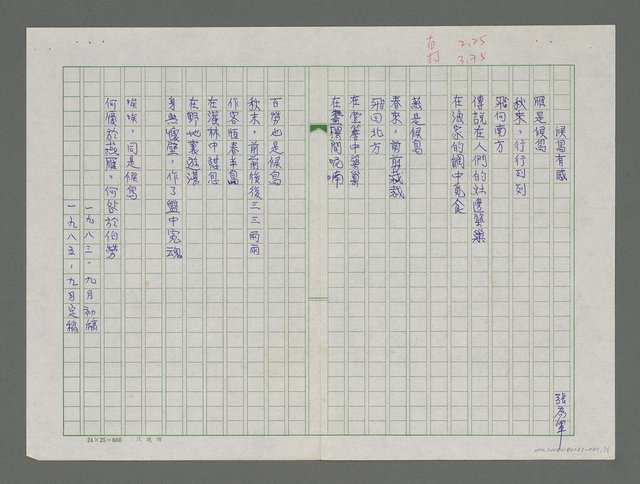 2.25
3.25
候鳥有感
張芳軍
雁是候鳥
秋來，行行列列
飛向南方
傳說在人們的灶邊築巢
在漁家的網中覓食
燕是候鳥
春來，剪剪裁裁
飛回北方
在堂簷中築巢
在畫樑間呢喃
百勞也是候鳥
秋末，前前後後三三兩兩
作客恒春半島
在灌林中棲息
在野地裏遊蕩
身無懷璧，作了盤中冤魂
唉唉，同是候鳥
何懷於燕雁，何咎於伯勞
一九八三，九月初稿
一九八五，九月定稿
24×25=600